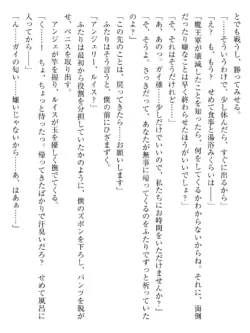 とでも戦うし、勝ってみせる
「そういうわけで、少し休んだら、すぐに出るから」
「え？　も、もう？　せめて食事と湯浴みくらいは――」
「魔王軍が壊滅したことを知ったら、何をしてくるかわからないからね。それに、面倒
だったり嫌なことは早く終わらせたほうがいいでしょ？」
「そ、それはそうだけれど……」
「あ、あのっ。ガイ様……少しだけでいいので、私たちにお時間をいただけませんか？」
「そ、そうよ。さっきだって、あなたが無事に帰ってくるのをふたりでずっと祈っていた
のよ？」
「この先のことは、戻ってきたら……お願いします」
「アンジェリー、ルイス？」
ふたりはそう言うと、僕の前にひざまずく。
ふたりは最初から役割を分担していたかのように、僕のズボンを下ろし、パンツを脱が
せ、ペニスを取り出す。
アンジェが竿を握り、ルイスが玉を優しく撫でてくる。
「ちょ、ちょっと待った。帰ってきたばかりで汗臭いだろ？　せめて風呂に
入ってから――」
「ん……ガイの匂い……嫌じゃないから……あ、はあぁ